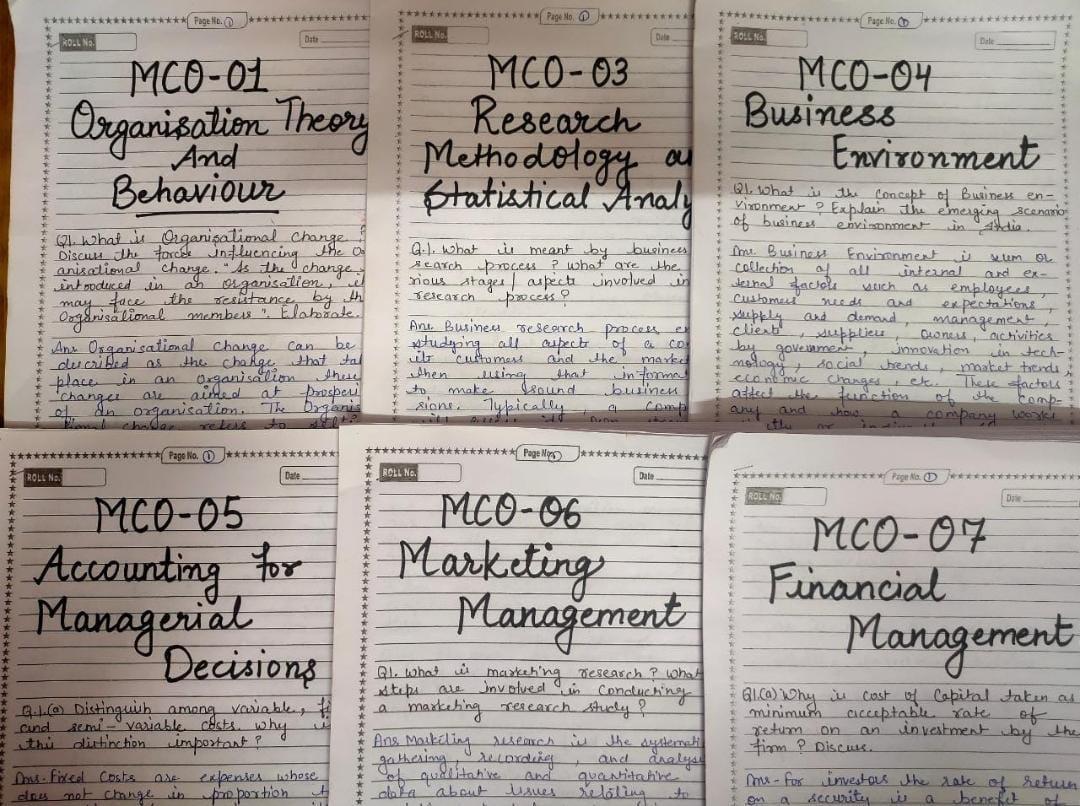 Page No. 1
ROLL No.
Date
MCO-01
Organisation Theory
And
Behaviour
Q1. What is Organisational change ?
Discuss the forces influencing the
anisational change. "As the change
introduced in an organisation,
may face the resistance by
Organisational members". Elaborate.
Ans Organisational change can be
described as the change that
place in an organisation these
changes are aimed at
of an organisation. The
change refers to
Page No. 1
ROLL No.
Date
MCO-03
Research
Methodology
Statistical Analy
Q.1. What is meant by business
search process ? what are the
rious stages / aspects involved in
research process?
Ans. Business research process
studying all aspects of a
its customers and the
then using that
to make sound business
sions. Typically, a
Page No. 1
ROLL No.
Date
MCO-04
Business
Environment
Q1. What is the concept of Business en-
vironment ? Explain the emerging scenario
of business environment in India.
Ans. Business Environment is sum or
collection of all internal and ex-
ternal factors such as employees,
customers needs and expectations,
supply and demand, management,
client, suppliers, owners, activities
by government, innovation in tech-
nology, social trends, market trends,
economic changes, etc. These factors
affect the function of the comp-
any and how a company works
Page No. 1
ROLL No.
Date
MCO-05
Accounting for
Managerial
Decisions
Q.1.(a) Distinguish among variable,
and semi-variable costs. why is
this distinction important ?
Ans-Fixed Costs are expenses whose
does not change in proportion
Page No.
ROLL No.
Date
MCO-06
Marketing
Management
Q1. what is marketing research ? What
steps are involved in conducting
a marketing research study?
Ans Marketing research is the
gathering, recording, and
of qualitative and quantitative
data about issues relating to
Page No. 1
ROLL No.
Date
MCO-07
Financial
Management
Q1.(a) Why is cost of Capital taken as
minimum acceptable rate of
return on an investment by the
firm ? Discuss.
Ans- For investors the rate of return
on a security is a benefit of